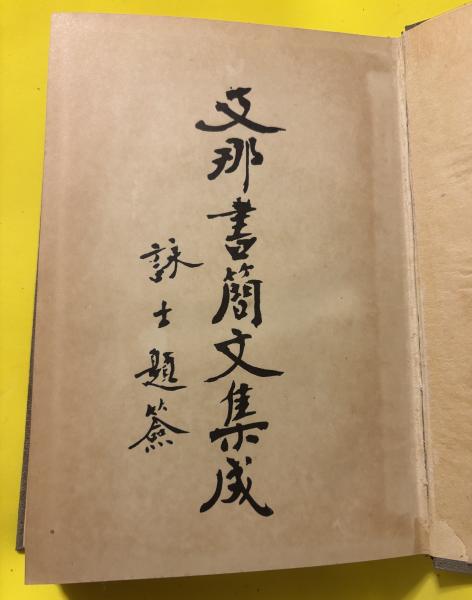 支那書簡文集成
詠士題簽